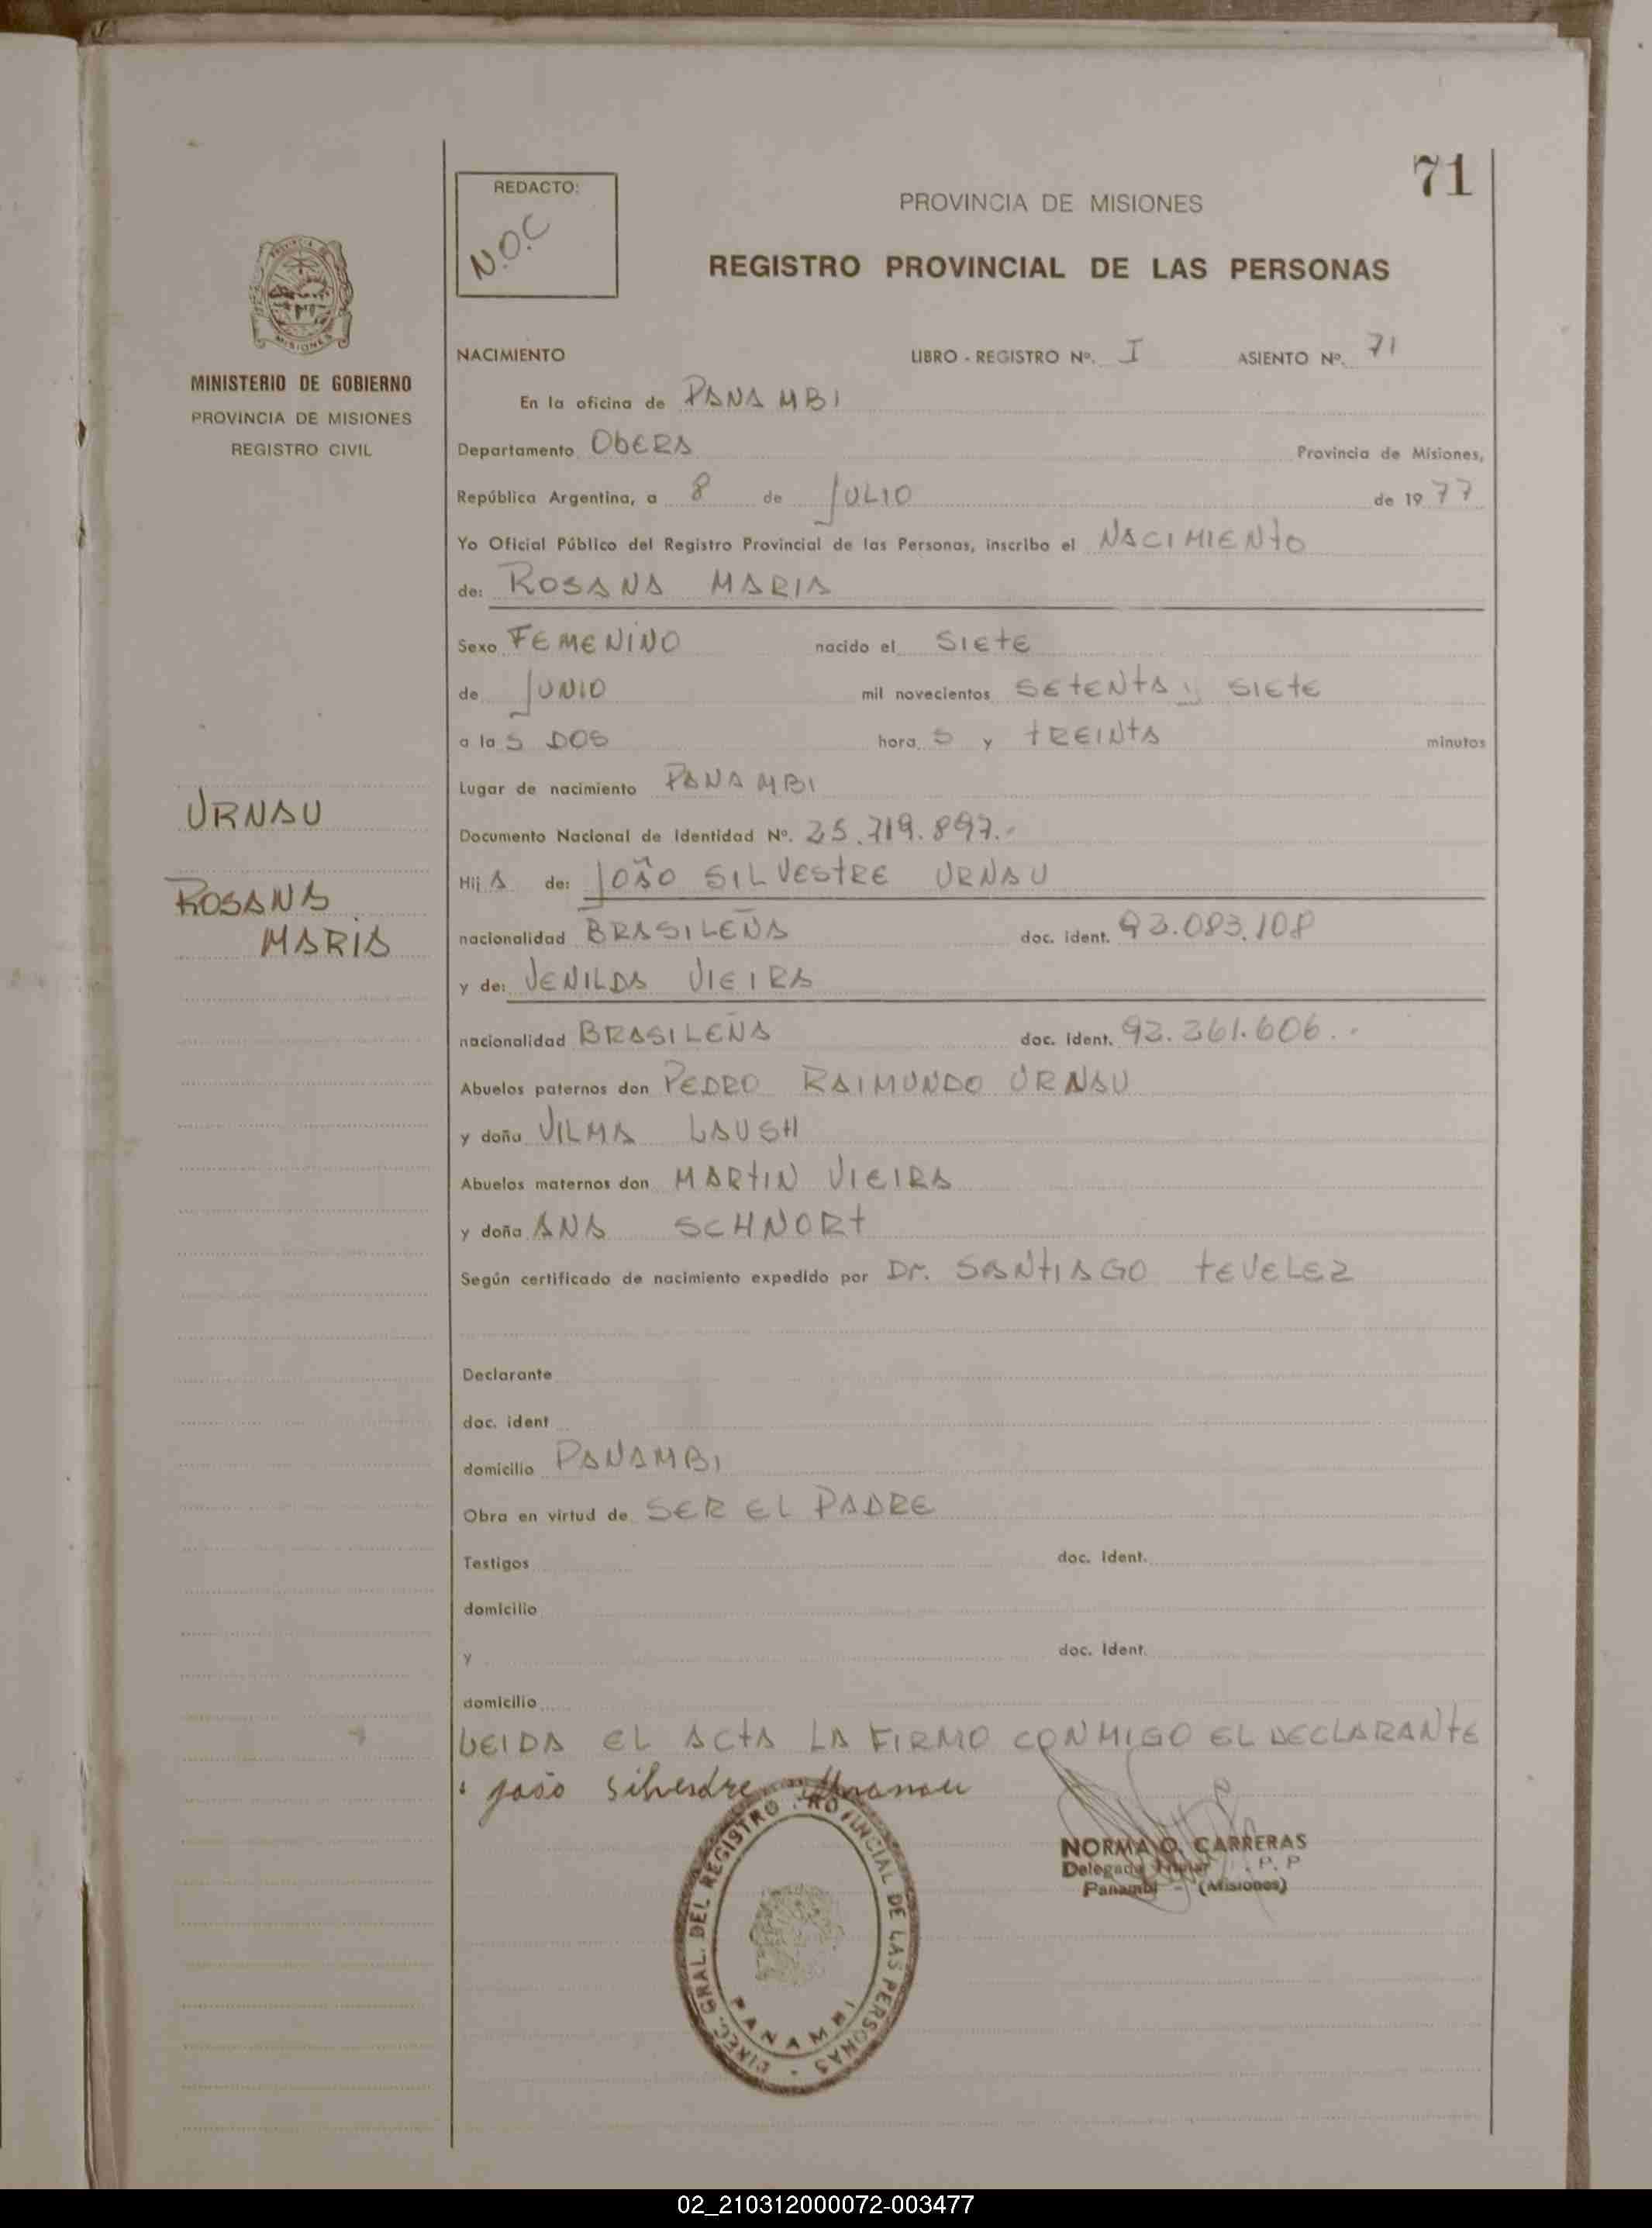 71
REDACTO:
N.O.C
PROVINCIA DE MISIONES
REGISTRO PROVINCIAL DE LAS PERSONAS
MISIONES
MINISTERIO DE GOBIERNO
PROVINCIA DE MISIONES
REGISTRO CIVIL
URNAU
ROSANA
MARIA
NACIMIENTO LIBRO - REGISTRO Nº. I ASIENTO Nº. 71
En la oficina de PANAMBI
Departamento ObERA Provincia de Misiones,
República Argentina, a 8 de JULIO de 1977
Yo Oficial Público del Registro Provincial de las Personas, inscribo el NACIMIENTO
de: ROSANA MARIA
Sexo FEMENINO nacido el SIETE
de JUNIO mil novecientos SETENTA y SIETE
a las DOS horas y TREINTA minutos
Lugar de nacimiento PANAMBI
Documento Nacional de Identidad Nº. 25.719.897.-
Hija de: JOÃO SILVESTRE URNAU
nacionalidad BRASILEÑA doc. ident. 93.083.108
y de: VENILDA VIEIRA
nacionalidad BRASILEÑA doc. ident. 92.361.606.-
Abuelos paternos don PEDRO RAIMUNDO URNAU
y doña VILMA LAUSH
Abuelos maternos don MARTIN VIEIRA
y doña ANA SCHNORT
Según certificado de nacimiento expedido por Dr. SANTIAGO TEVELEZ
Declarante
doc. ident
domicilio PANAMBI
Obra en virtud de SER EL PADRE
Testigos doc. ident.
domicilio
y doc. ident.
domicilio
LEIDA EL ACTA LA FIRMO CONMIGO EL DECLARANTE
João Silvestre
NORMA O. CARRERAS
Delegada Titular P. P
Panambí - (Misiones)
DIREC. GRAL. DEL REGISTRO PROVINCIAL DE LAS PERSONAS
PANAMBI
02_210312000072-003477